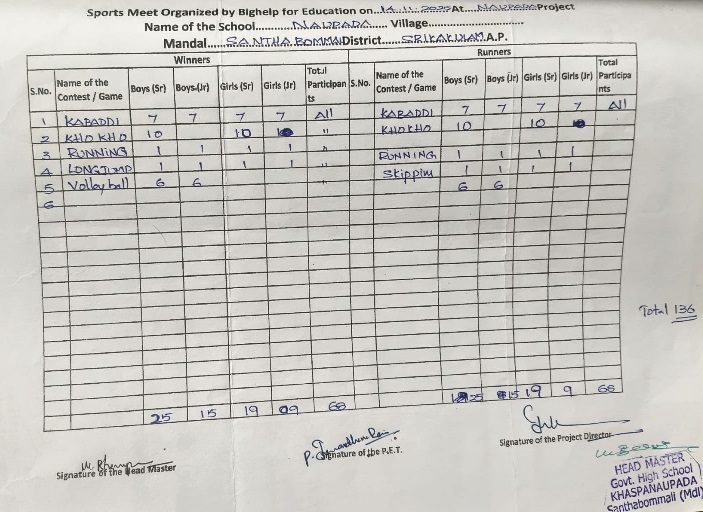 Sports Meet Organized by Bighelp for Education on..14.11.2022At....NAUPADAProject
Name of the School............NAUPADA...... Village............................
Mandal......SANTHA BOMMALIDistrict......SRIKAKULAM.A.P.
Winners Runners
S.No. Name of the Contest / Game Boys (Sr) Boys(Jr) Girls (Sr) Girls (Jr) Total Participants S.No. Name of the Contest / Game Boys (Sr) Boys (Jr) Girls (Sr) Girls (Jr) Total Participants
1 KABADDI 7 7 7 7 All KABADDI 7 7 7 7 All
2 KHO KHO 10 10 " KHO KHO 10 10
3 RUNNING 1 1 1 1 " RUNNING 1 1 1 1
4 LONGJUMP 1 1 1 1 " Skipping 1 1 1 1
5 Volley ball 6 6 " 6 6
6
Total 136
25 15 19 09 68 25 15 19 9 68
Signature of the Head Master
Signature of the P.E.T.
Signature of the Project Director
HEAD MASTER
Govt. High School
KHASPANAUPADA
Santhabommali (Mdl)